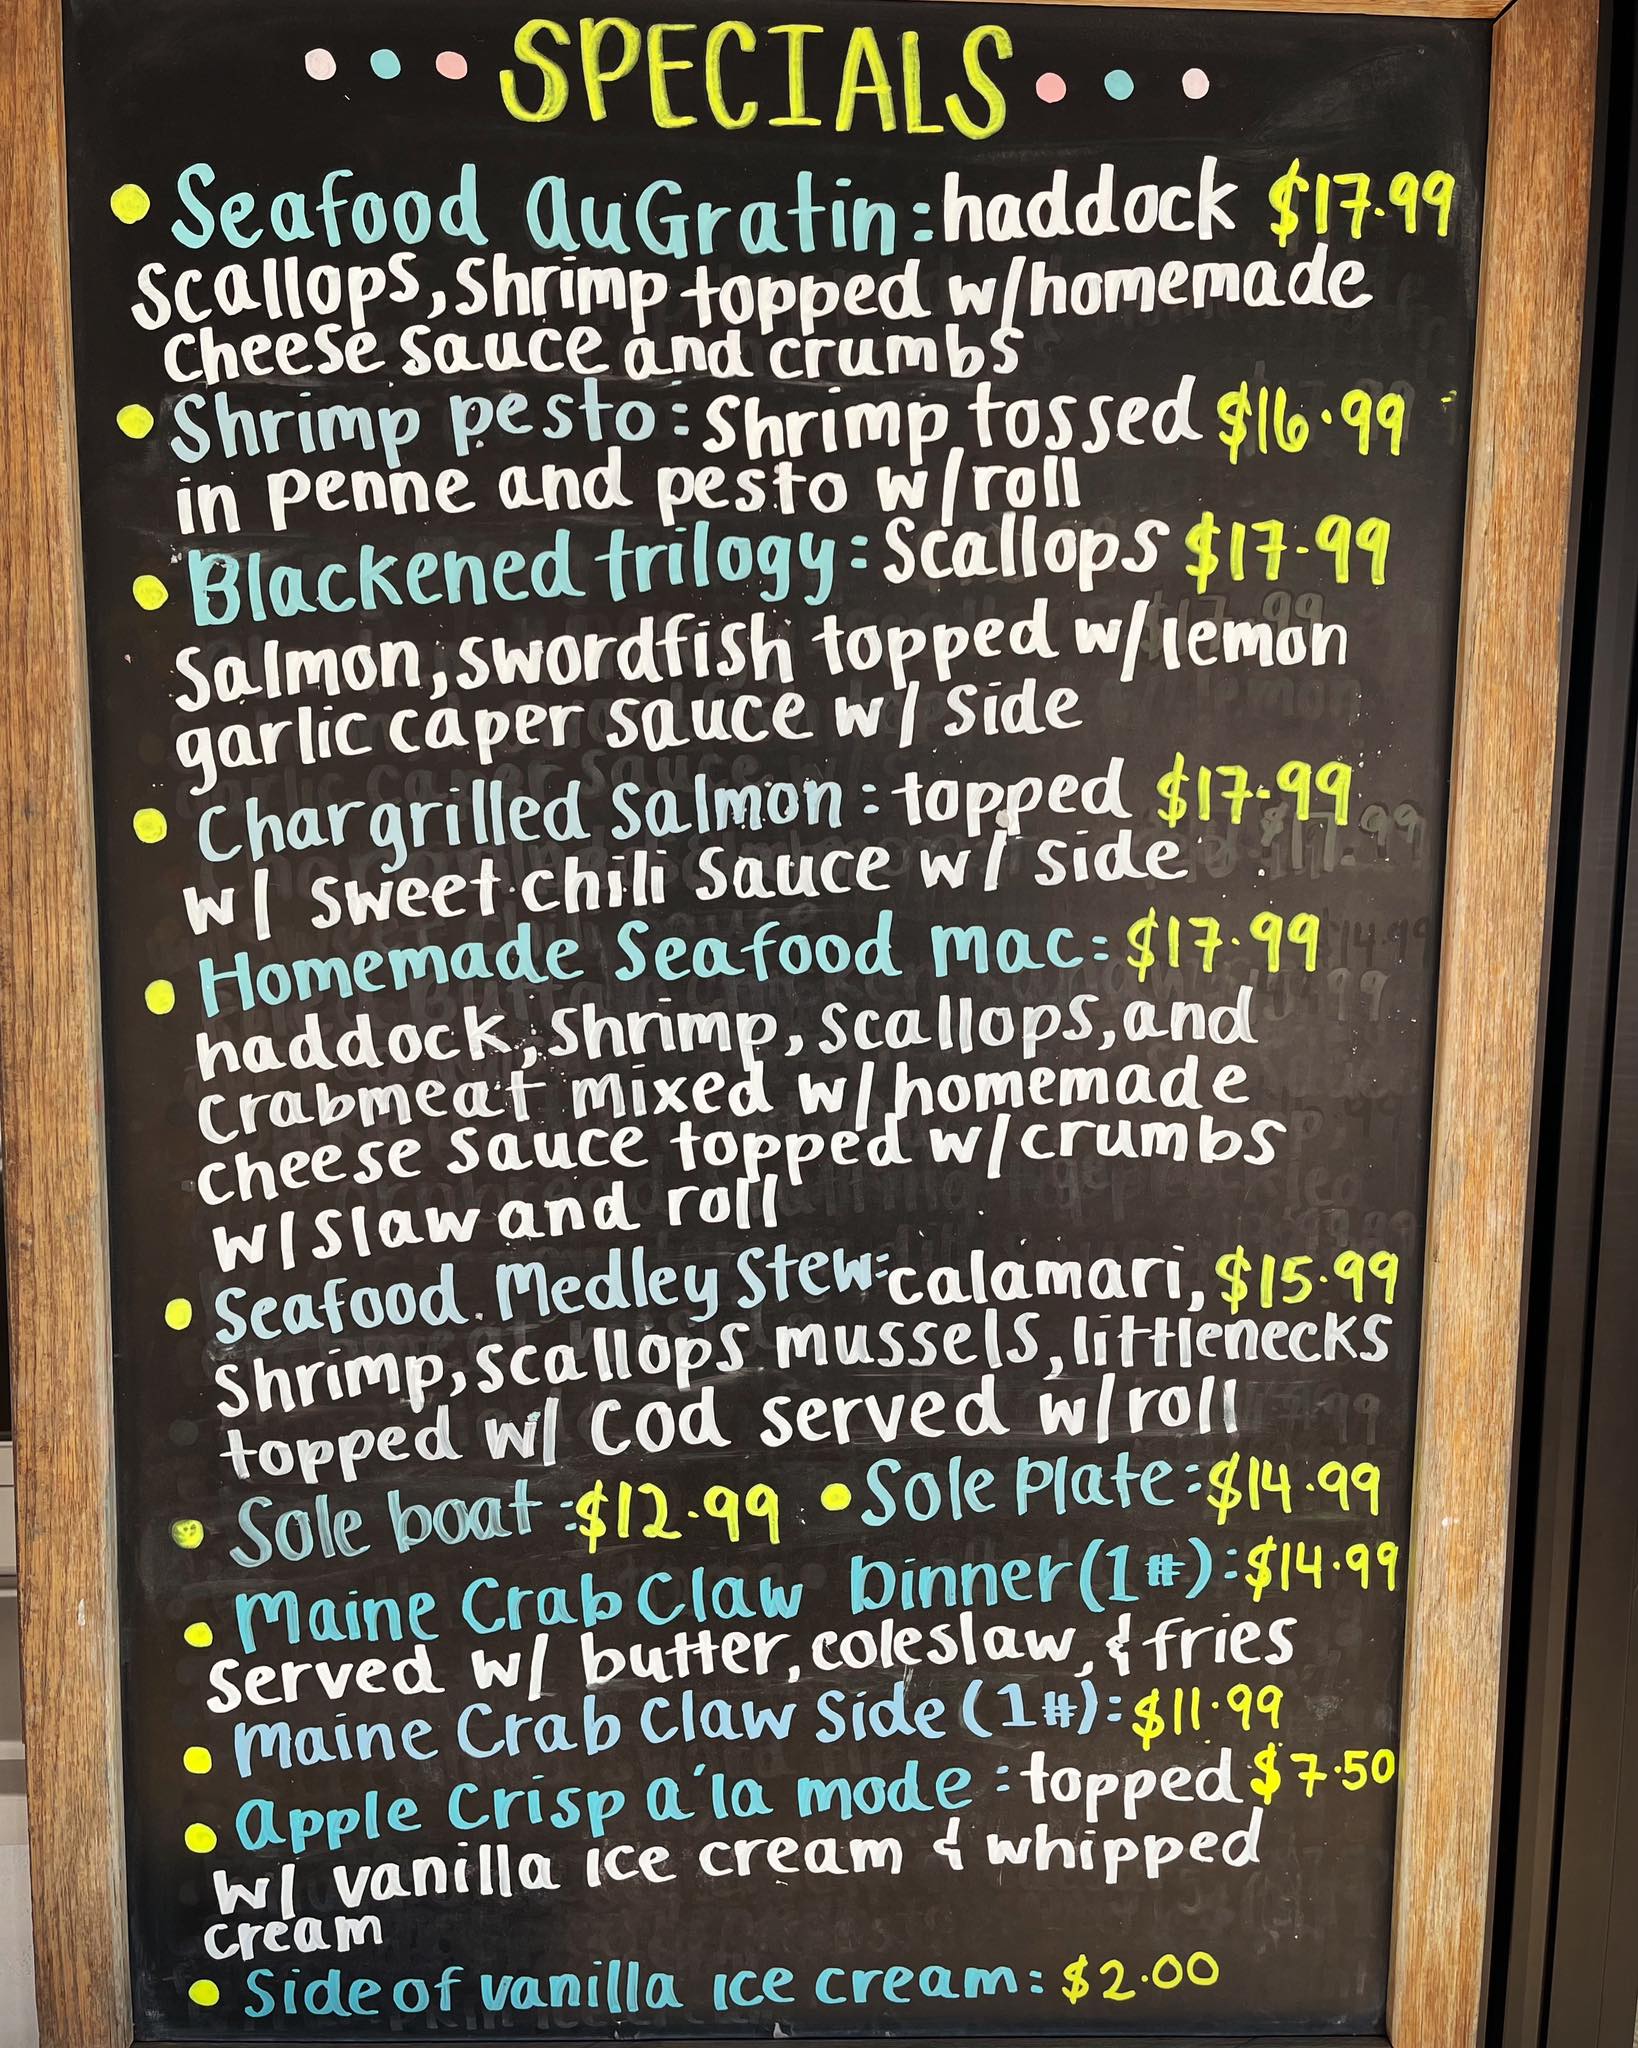 SPECIALS
Seafood AuGratin: haddock $17.99
Scallops, Shrimp topped w/homemade
cheese sauce and crumbs
Shrimp pesto: Shrimp tossed $16.99
in penne and pesto w/roll
Blackened trilogy: Scallops $17.99
Salmon, swordfish topped w/lemon
garlic caper sauce w/ side
Chargrilled Salmon: topped $17.99
w/ sweet chili sauce w/ side
Homemade Seafood mac: $17.99
haddock, shrimp, scallops, and
crabmeat mixed w/homemade
cheese sauce topped w/crumbs
w/slaw and roll
Seafood Medley Stew: calamari, $15.99
Shrimp, scallops mussels, littlenecks
topped w/ cod served w/roll
Sole boat: $12.99 Sole Plate: $14.99
Maine Crab Claw Dinner (1#): $14.99
served w/ butter, coleslaw, & fries
Maine Crab Claw Side (1#): $11.99
Apple Crisp a'la mode: topped $7.50
w/ vanilla ice cream & whipped
cream
Side of vanilla ice cream: $2.00